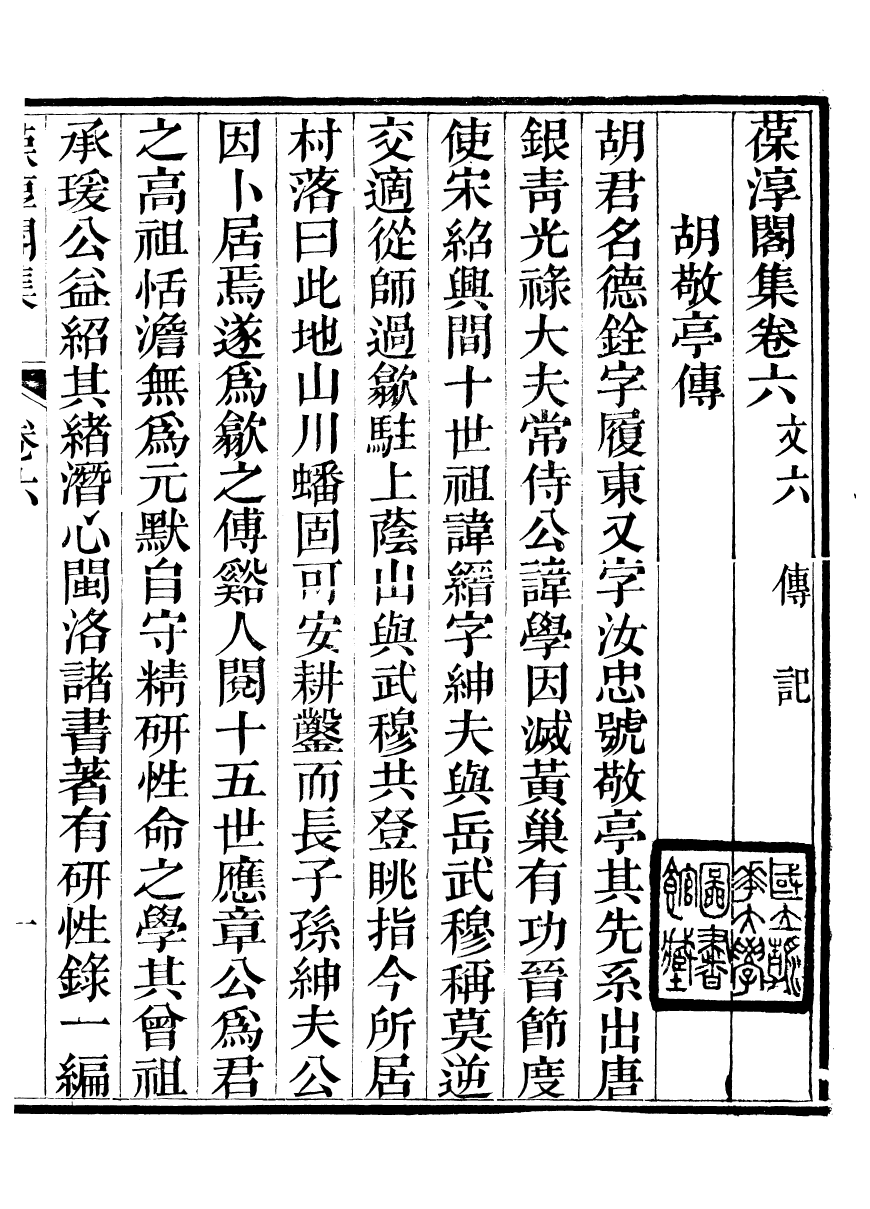 葆淳閣集卷六 文六 傳 記
胡敬亭傳
胡君名德銓字履東又字汝忠號敬亭其先系出唐
銀青光祿大夫常侍公諱學因滅黃巢有功晉節度
使宋紹興間十世祖諱縉字紳夫與岳武穆稱莫逆
交適從師過歙駐上蔭山與武穆共登眺指今所居
村落曰此地山川蟠固可安耕鑿而長子孫紳夫公
因卜居焉遂爲歙之傅谿人閱十五世應章公爲君
之高祖恬澹無爲元默自守精研性命之學其曾祖
承瑗公益紹其緒潛心閩洛諸書著有研性錄一編
葆淳閣集 卷六 一
國立清華大學圖書館藏